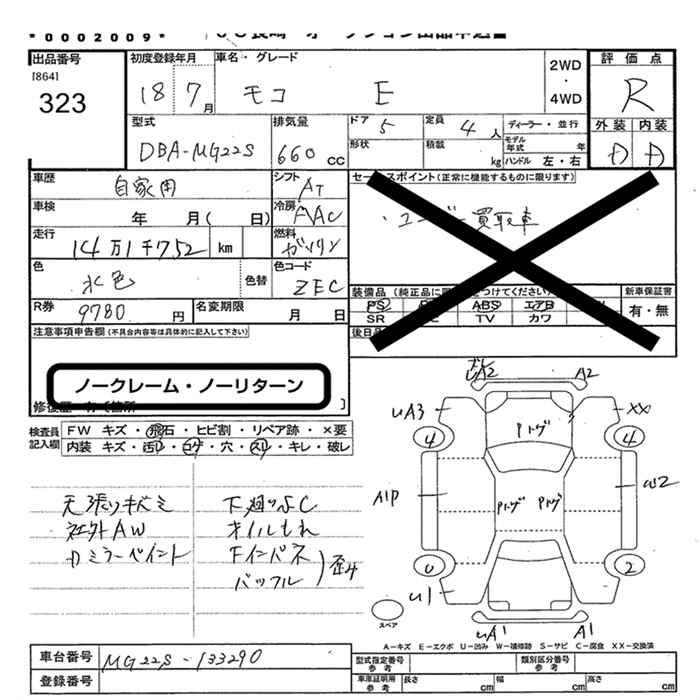 *0002009*
出品番号
[864]
323
初度登録年月
18 7月
車名・グレード
モコ E
2WD
・
4WD
評価点
R
外装 内装
D D
型式
DBA-MG22S
排気量
660 CC
ドア 5
定員 4人
ディーラー・並行
形状
積載 kg
モデル年式 年
ハンドル 左・右
車歴
自家用
シフト
AT
車検
年 月( 日)
冷房
AAC
走行
14万1千752 km
燃料
ガソリン
色
水色
色替
色コード
ZEC
R券
9780 円
名変期限
月 日
セールスポイント(正常に機能するものに限ります)
・ユーザー買取車
装備品(純正品に つけてください)
PS ABS エアB
SR TV カワ
新車保証書
有・無
後日
注意事項申告欄(不具合内容等は具体的に記入して下さい)
ノークレーム・ノーリターン
修復歴
検査員記入欄
FW キズ・飛石・ヒビ割・リペア跡・×要
内装 キズ・汚レ・コゲ・穴・スレ・キレ・破レ
天張りキズミ
社外AW
カミラーペイント
下廻りSC
オイルもれ
Fインパネ
バッフル
歪み
UA2 A2
UA3 XX
4 4
Pトゲ
A1P
Pトゲ Pトゲ
W2
0 2
U1
UA1 A1
スペア
A-キズ E-エクボ U-凹み W-補修跡 S-サビ C-腐食 XX-交換済
車台番号
MG22S-133290
登録番号
型式指定番号 参考
類別区分番号 参考
車庫証明用 参考
長さ cm
幅 cm
高さ cm